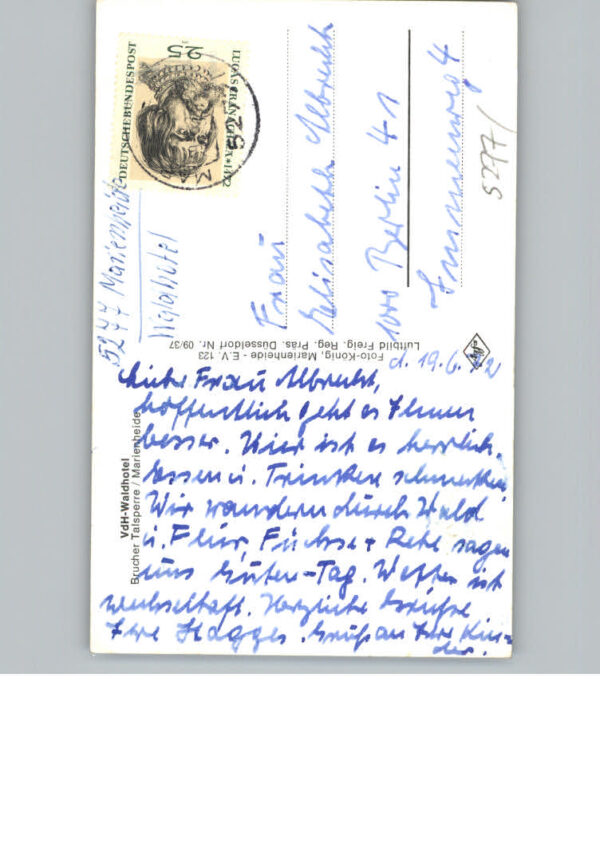 DEUTSCHE BUNDESPOST
25
LUCAS CRANACH D.Ä. * 1472
52
5277 Marienheide
Waldhotel
Frau
Elisabeth Albrecht
1000 Berlin 41
5277/
Foto-König, Marienheide - E.V. 123
Luftbild Freig. Reg. Präs. Düsseldorf Nr. 09/37
VdH-Waldhotel
Brucher Talsperre / Marienheide
d. 19.6.72
Liebe Frau Albrecht,
hoffentlich geht es Ihnen
besser. Hier ist es herrlich.
Essen u. Trinken schmecken.
Wir wandern durch Wald
u. Flur, Füchse + Rehe sagen
uns Guten-Tag. Wetter ist
wechselhaft. Herzliche Grüsse
Ihre Gruß an Ihre Kin-
der.